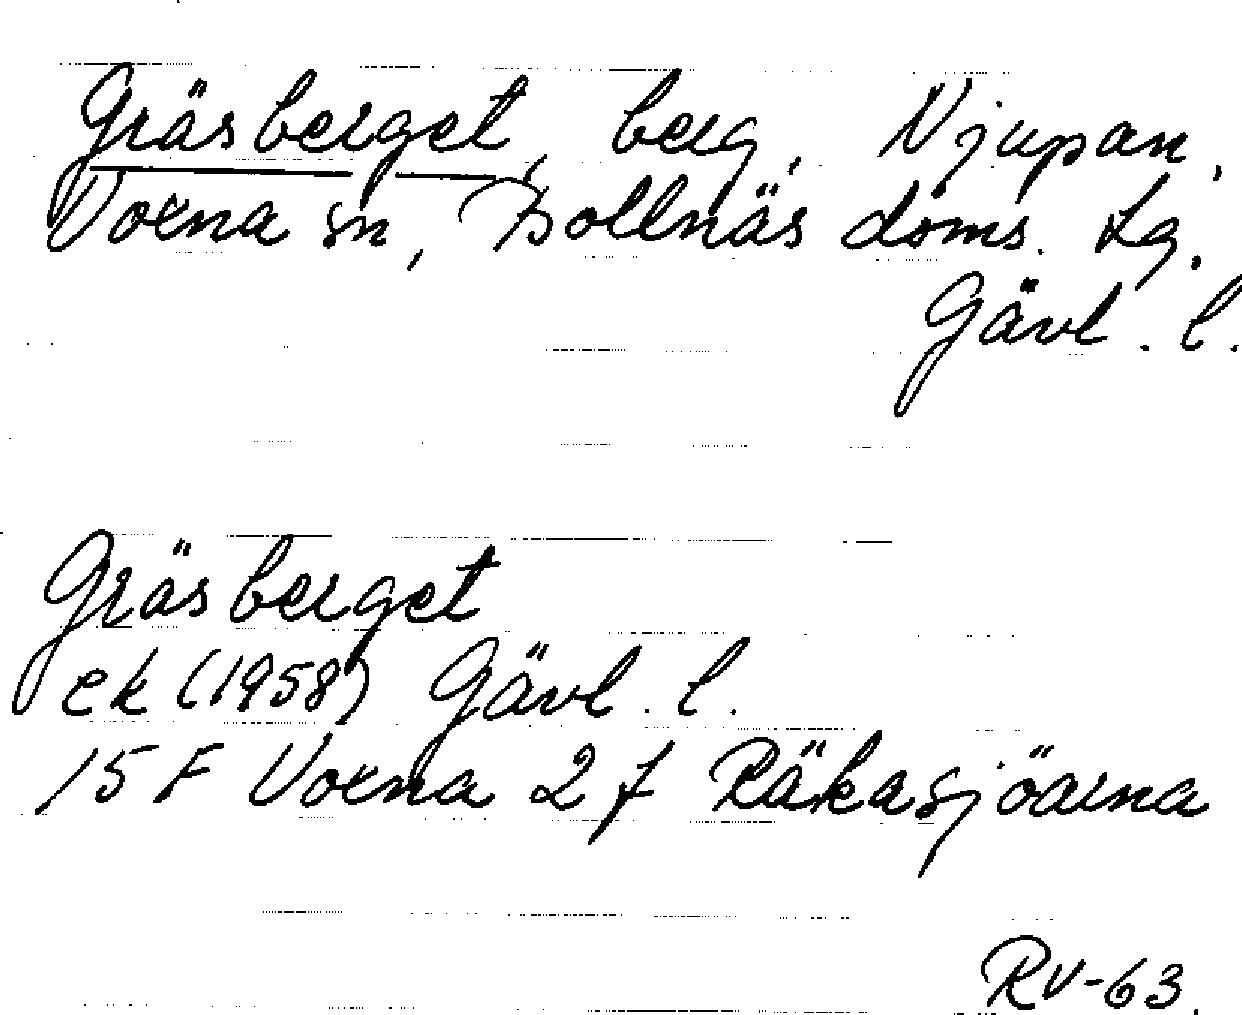 Gräsberget, berg, Njupan,
Voxna sn, Bollnäs doms. Lg.
Gävl. l.
Gräsberget
ek (1958) Gävl. l.
15 F Voxna 2 f Räkasjöarna
RV-63.